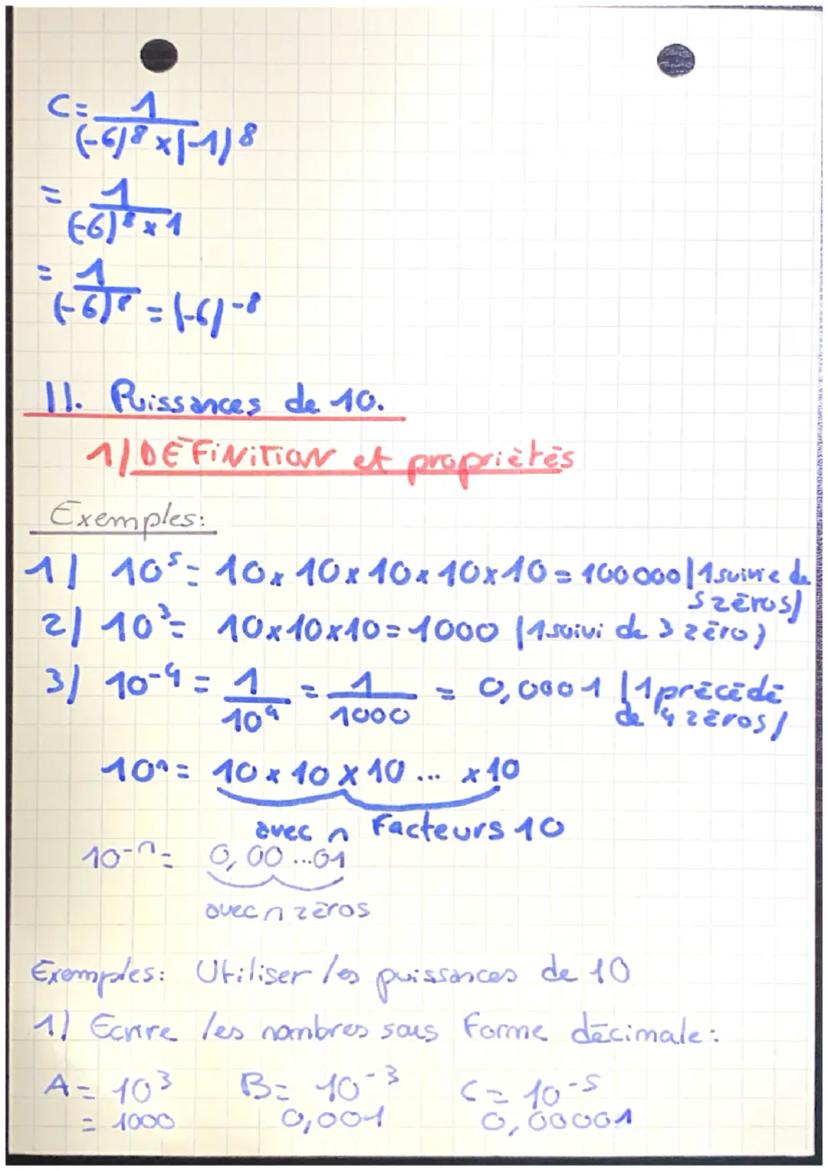 C = 1/((-6)^8 × (-1)^8)
= 1/((-6)^8 × 1)
= 1/(-6)^8 = (-6)^-8
II. Puissances de 10.
1) DÉFiNiTiON et propriétés
Exemples:
1) 10^5 = 10 × 10 × 10 × 10 × 10 = 100 000 (1 suivie de
5 zéros)
2) 10^3 = 10×10×10 = 1000 (1 suivi de 3 zéro)
3) 10^-4 = 1/10^4 = 1/1000 = 0,0001 (1 précédé
de 4 zéros)
10^n = 10 × 10 × 10 ... × 10
avec n facteurs 10
10^-n = 0,00...01
avec n zéros
Exemples: Utiliser les puissances de 10
1) Ecrire les nombres sous forme décimale:
A = 10^3 B = 10^-3 C = 10^-5
= 1000 0,001 0,00001